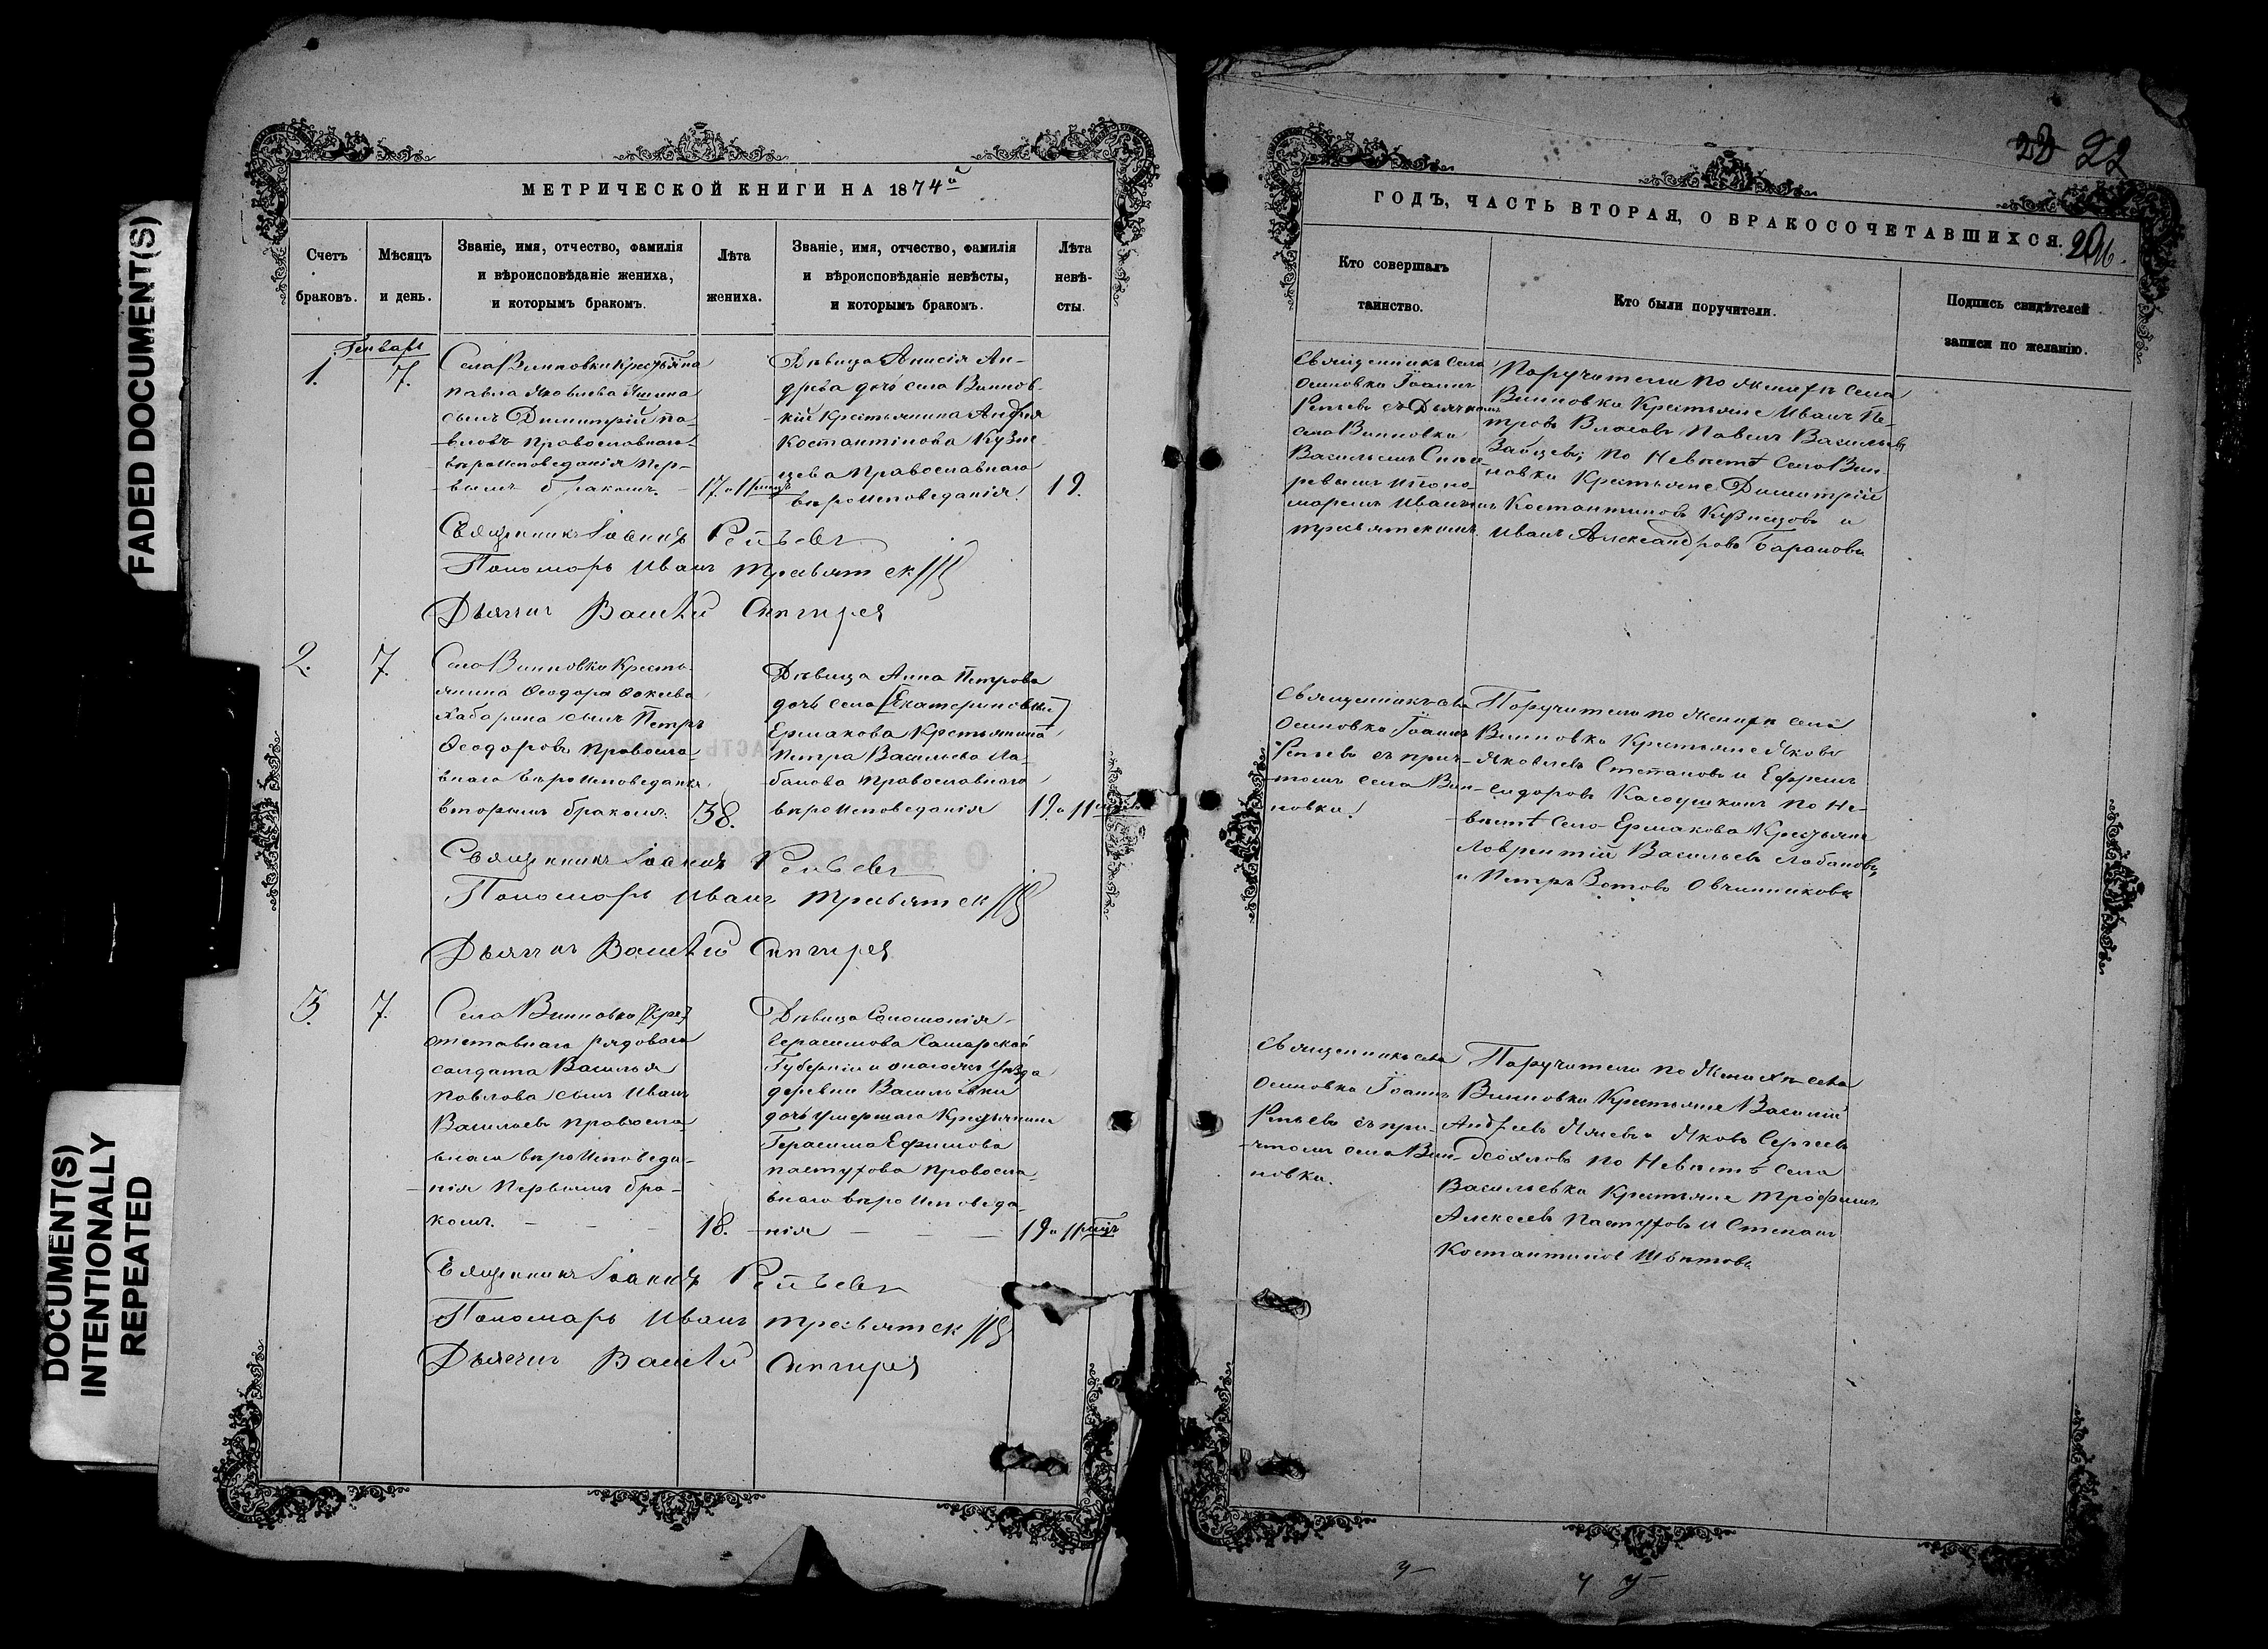 FADED DOCUMENT(S)
DOCUMENT(S)
INTENTIONALLY
REPEATED
МЕТРИЧЕСКОЙ КНИГИ НА 1874й
Счетъ
браковъ.
Мѣсяцъ
и день.
Званіе, имя, отчество, фамилія
и вѣроисповѣданіе жениха,
и которымъ бракомъ.
Лѣта
жениха.
Званіе, имя, отчество, фамилія
и вѣроисповѣданіе невѣсты,
и которымъ бракомъ.
Лѣта
невѣ-
сты.
Генварь
1.
7.
Села Винновки Крестьянина
Павла Яковлева Яшина
сынъ Димитрій Па-
вловъ Православнаго
вѣроисповеданія пер-
вымъ бракомъ.
17. и 11 
Дѣвица Анисія Ан-
дреева дочь села Виннов-
кій Крестьянина Андрея
Костантінова Кузне-
цова Православнаго
вѣроисповеданія.
19.
Священникъ Іоаннъ Репьевъ
Пономарь Иванъ
Дьячекъ Василій
2.
7.
Села Винновки Кресть-
янина Ѳеодора
Хабарина сынъ Петръ
Ѳеодоровъ Правосла-
внаго вѣроисповеданія
вторымъ бракомъ.
38.
Дѣвица Анна Петрова
дочь села [Екатериновки]
Ермакова Крестьянина
Петра Васильева Ло-
банова Православнаго
вѣроисповеданія
19. и 11
Священникъ Іоаннъ Репьевъ
Пономарь Иванъ
Дьячекъ Василій
3.
7.
Села Винновки [Кре]
отставнаго рядоваго
солдата Василья
Павлова сынъ Иванъ
Васильевъ Правосла-
внаго вѣроисповеда-
нія первымъ бра-
комъ. — — —
18.
Дѣвица Соломонія
Герасимова Самарской
Губерніи и онагожъ Уѣзда
деревни Васильевки
дочь умершаго Крестьянина
Герасима Ефимова
Пастухова Правосла-
внаго вѣроисповеда-
нія — — —
19 и 11
Священникъ Іоаннъ Репьевъ
Пономарь Иванъ
Дьячекъ Василій
22
ГОДЪ, ЧАСТЬ ВТОРАЯ, О БРАКОСОЧЕТАВШИХСЯ.
Кто совершалъ
таинство.
Кто были поручители.
Подпись свидѣтелей
записи по желанію.
Священникъ села
Осиновки Іоаннъ
Репьевъ съ Дьячкомъ
села Винновки
Васильемъ
и поно-
маремъ Иваномъ
Поручители по Женихѣ села
Винновки Крестьяне Иванъ Пе-
тровъ Власовъ Павелъ Васильевъ
по Невѣстѣ Села Вин-
новки Крестьяне Димитрій
Костантиновъ Кузнецовъ и
Иванъ Александровъ Барановъ
Священникъ села
Осиновки Іоаннъ
Репьевъ съ прич-
томъ села Вин-
новки.
Поручители по Женихѣ села
Винновки Крестьяне Яковъ
Яковлевъ Степановъ и Ефремъ
Сидоровъ по Не-
вѣстѣ Села Ермакова Крестьяне
Лаврентій Васильевъ Лобановъ
и Петръ Зотовъ Овчинниковъ
Священникъ села
Осиновки Іоаннъ
Репьевъ съ при-
чтомъ села Вин-
новки.
Поручители по Женихѣ села
Винновки Крестьяне Василій
Андреевъ и Яковъ Сергеевъ
по Невѣстѣ Села
Васильевки Крестьяне Трофимъ
Алексеевъ Пастуховъ и Степанъ
Костантиновъ